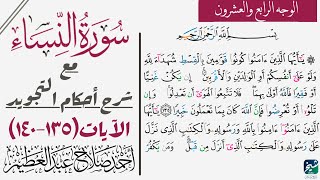 الوجه الرابع والعشرون
سورة النساء
مع
شرح أحكام التجويد
الآيات (١٣٥-١٤٠)
أحمد صلاح عبد العظيم
بِسْمِ اللَّهِ الرَّحْمَٰنِ الرَّحِيمِ
يَٰٓأَيُّهَا الَّذِينَ ءَامَنُوا كُونُوا قَوَّٰمِينَ بِالْقِسْطِ شُهَدَآءَ لِلَّهِ
وَلَوْ عَلَىٰٓ أَنفُسِكُمْ أَوِ الْوَٰلِدَيْنِ وَالْأَقْرَبِينَ إِن يَكُنْ غَنِيًّا
أَوْ فَقِيرًا فَاللَّهُ أَوْلَىٰ بِهِمَا فَلَا تَتَّبِعُوا الْهَوَىٰٓ أَن تَعْدِلُوا وَإِن
تَلْوُۥٓا أَوْ تُعْرِضُوا فَإِنَّ اللَّهَ كَانَ بِمَا تَعْمَلُونَ خَبِيرًا ١٣٥ يَٰٓأَيُّهَا
الَّذِينَ ءَامَنُوٓا ءَامِنُوا بِاللَّهِ وَرَسُولِهِۦ وَالْكِتَٰبِ الَّذِي نَزَّلَ
عَلَىٰ رَسُولِهِۦ وَالْكِتَٰبِ الَّذِيٓ